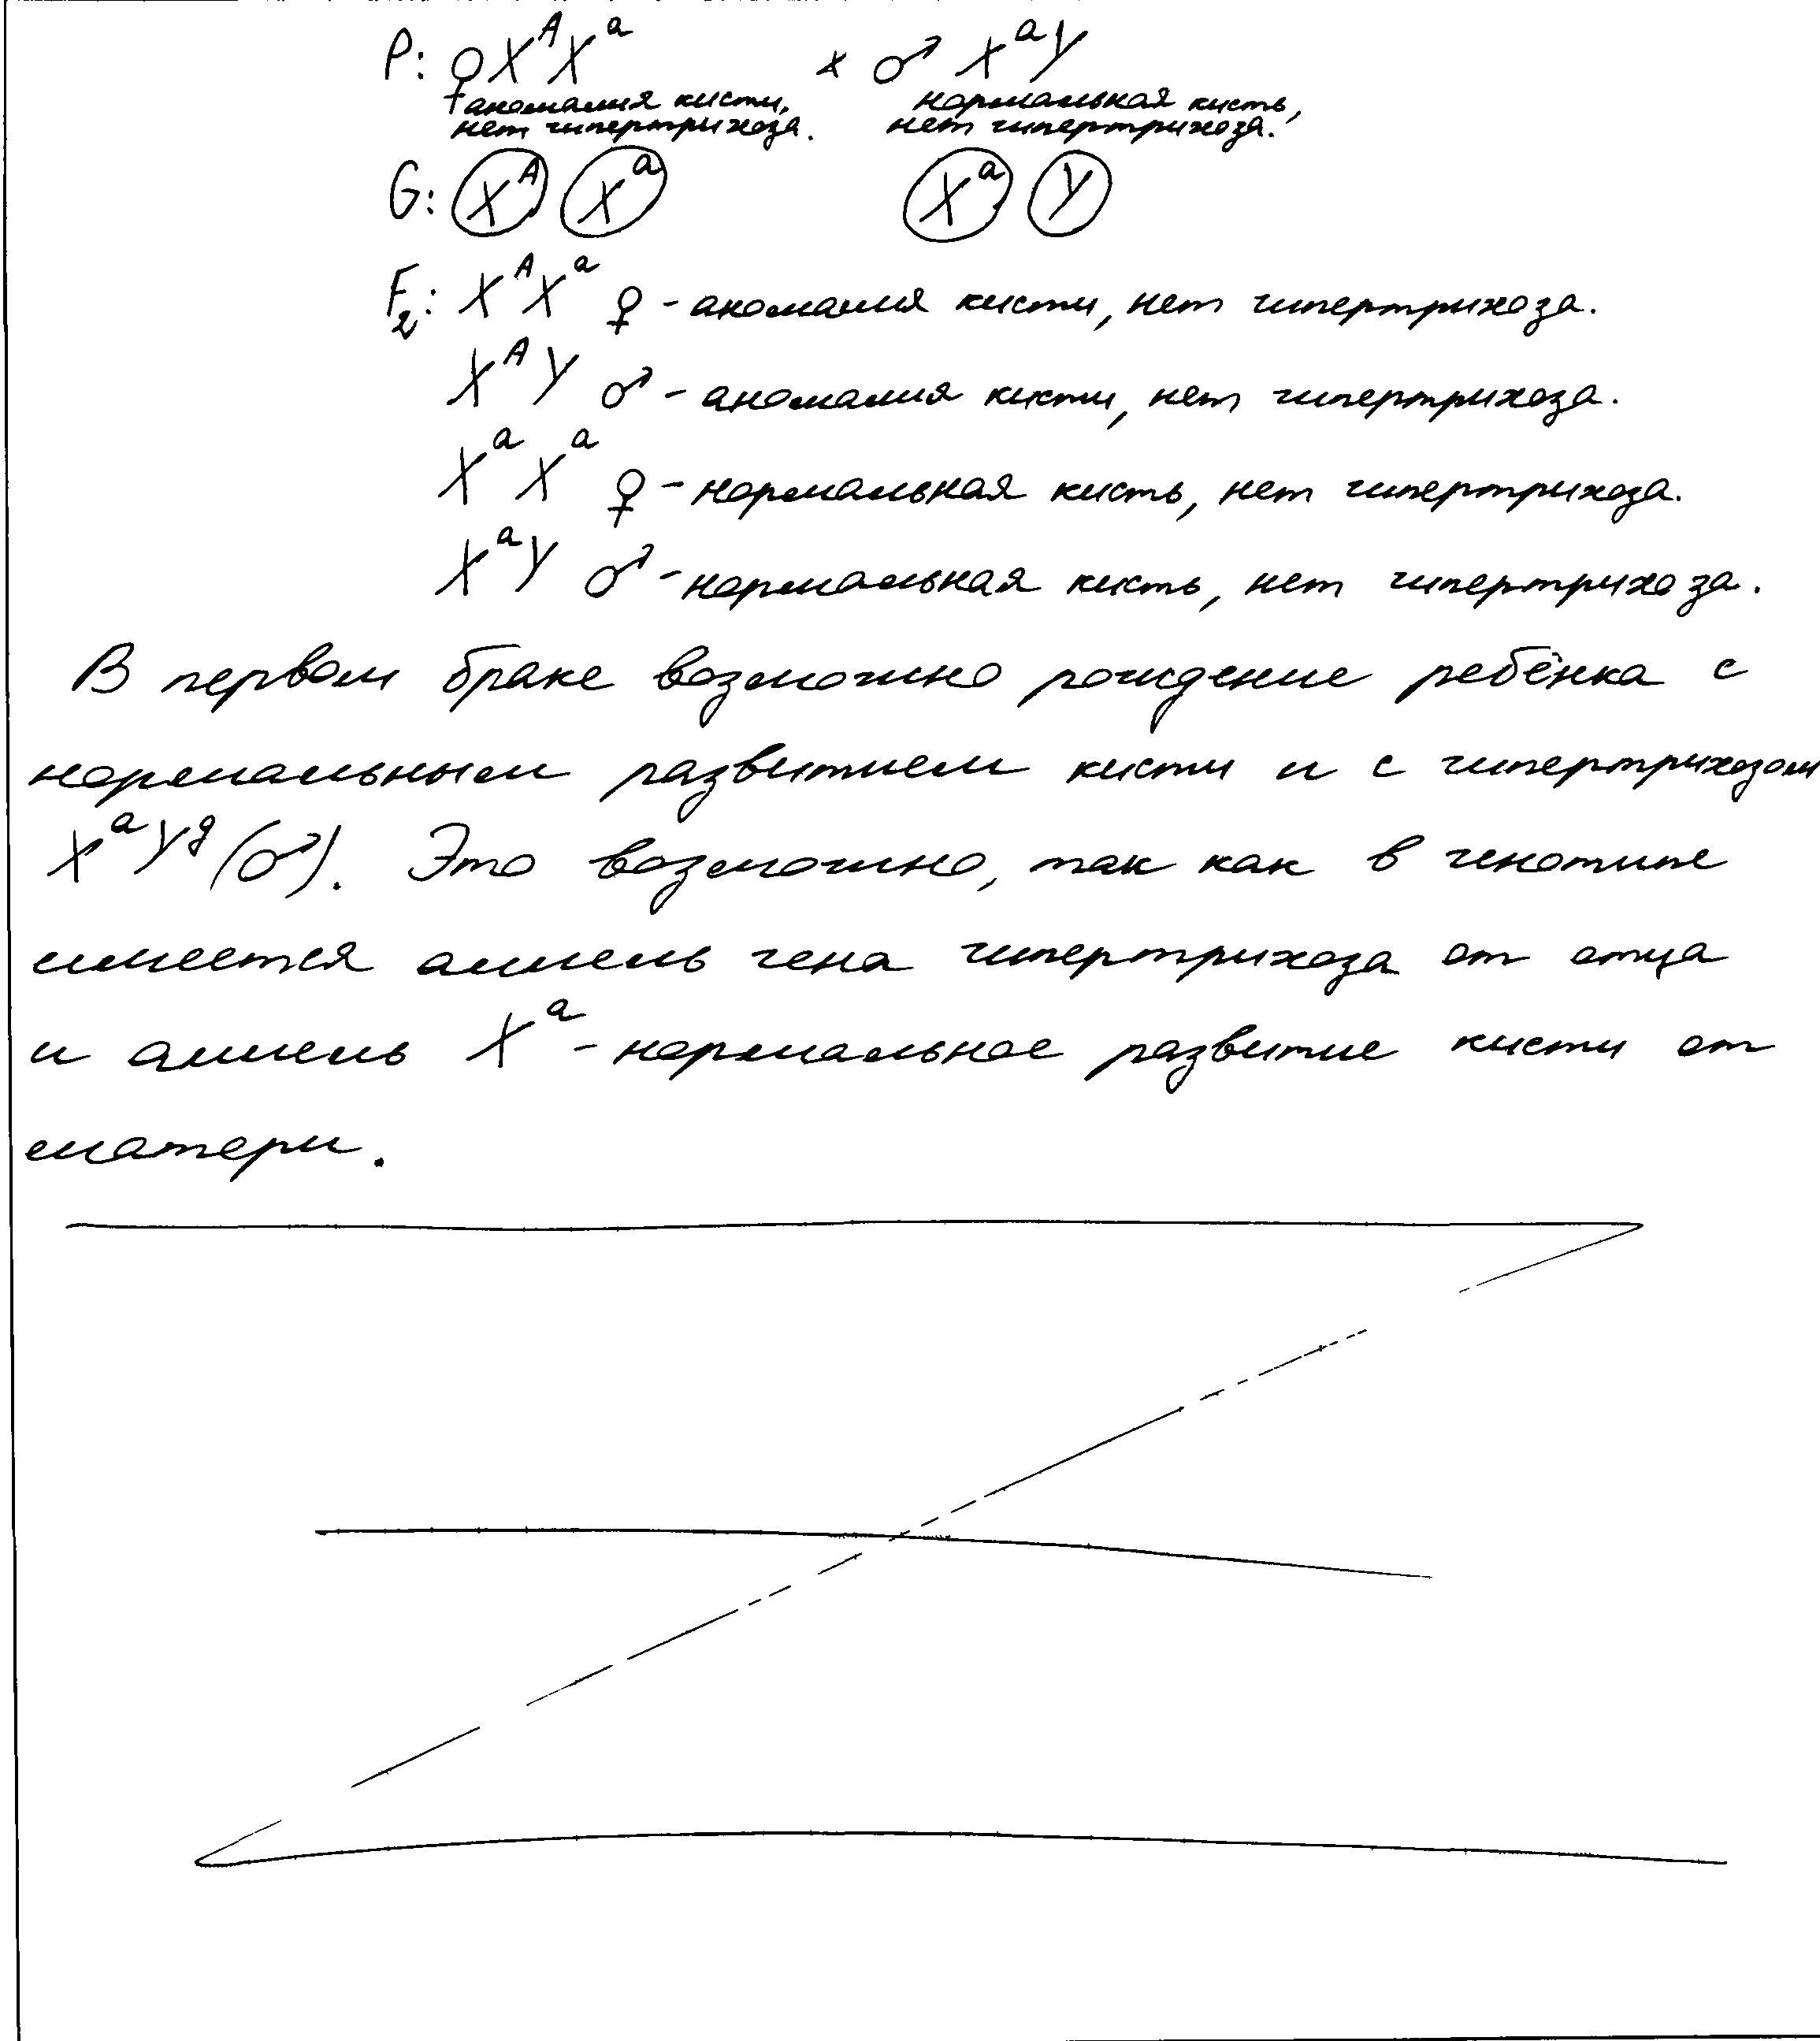 P: ♀ XᴬXᵃ × ♂ XᵃY
аномалия кисти, нормальная кисть,
нет гипертрихоза. нет гипертрихоза.
G: Xᴬ Xᵃ Xᵃ Y
F₂: XᴬXᵃ ♀ - аномалия кисти, нет гипертрихоза.
XᴬY ♂ - аномалия кисти, нет гипертрихоза.
XᵃXᵃ ♀ - нормальная кисть, нет гипертрихоза.
XᵃY ♂ - нормальная кисть, нет гипертрихоза.
В первом браке возможно рождение ребёнка с
нормальным развитием кисти и с гипертрихозом
XᵃYᵍ (♂). Это возможно, так как в генотипе
имеется аллель гена гипертрихоза от отца
и аллель Xᵃ - нормальное развитие кисти от
матери.